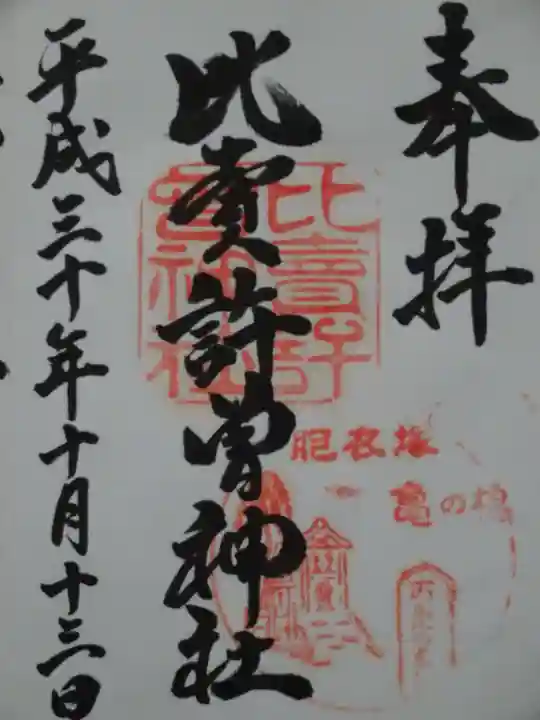 奉拝
比賣許曽神社
平成三十年十月十三日
比賣許曽神社
胞衣塚
亀の橋